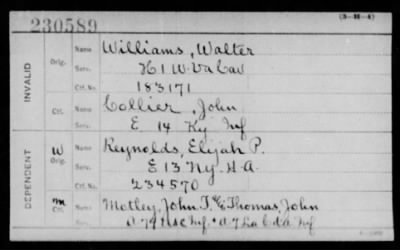 230589
(5-M-4)
INVALID
Orig.
Name Williams, Walter
Serv. H 1 W. Va Cav
Ctf. No. 183171
Ctf.
Name Collier, John
Serv. E 14 Ky Inf
DEPENDENT
W
Orig.
Name Reynolds, Elijah P.
Serv. E 13 N.Y. H.A.
Ctf. No. 234570
m
Ctf.
Name Motley, John T. & Thomas, John
Serv. A 74 Inf.